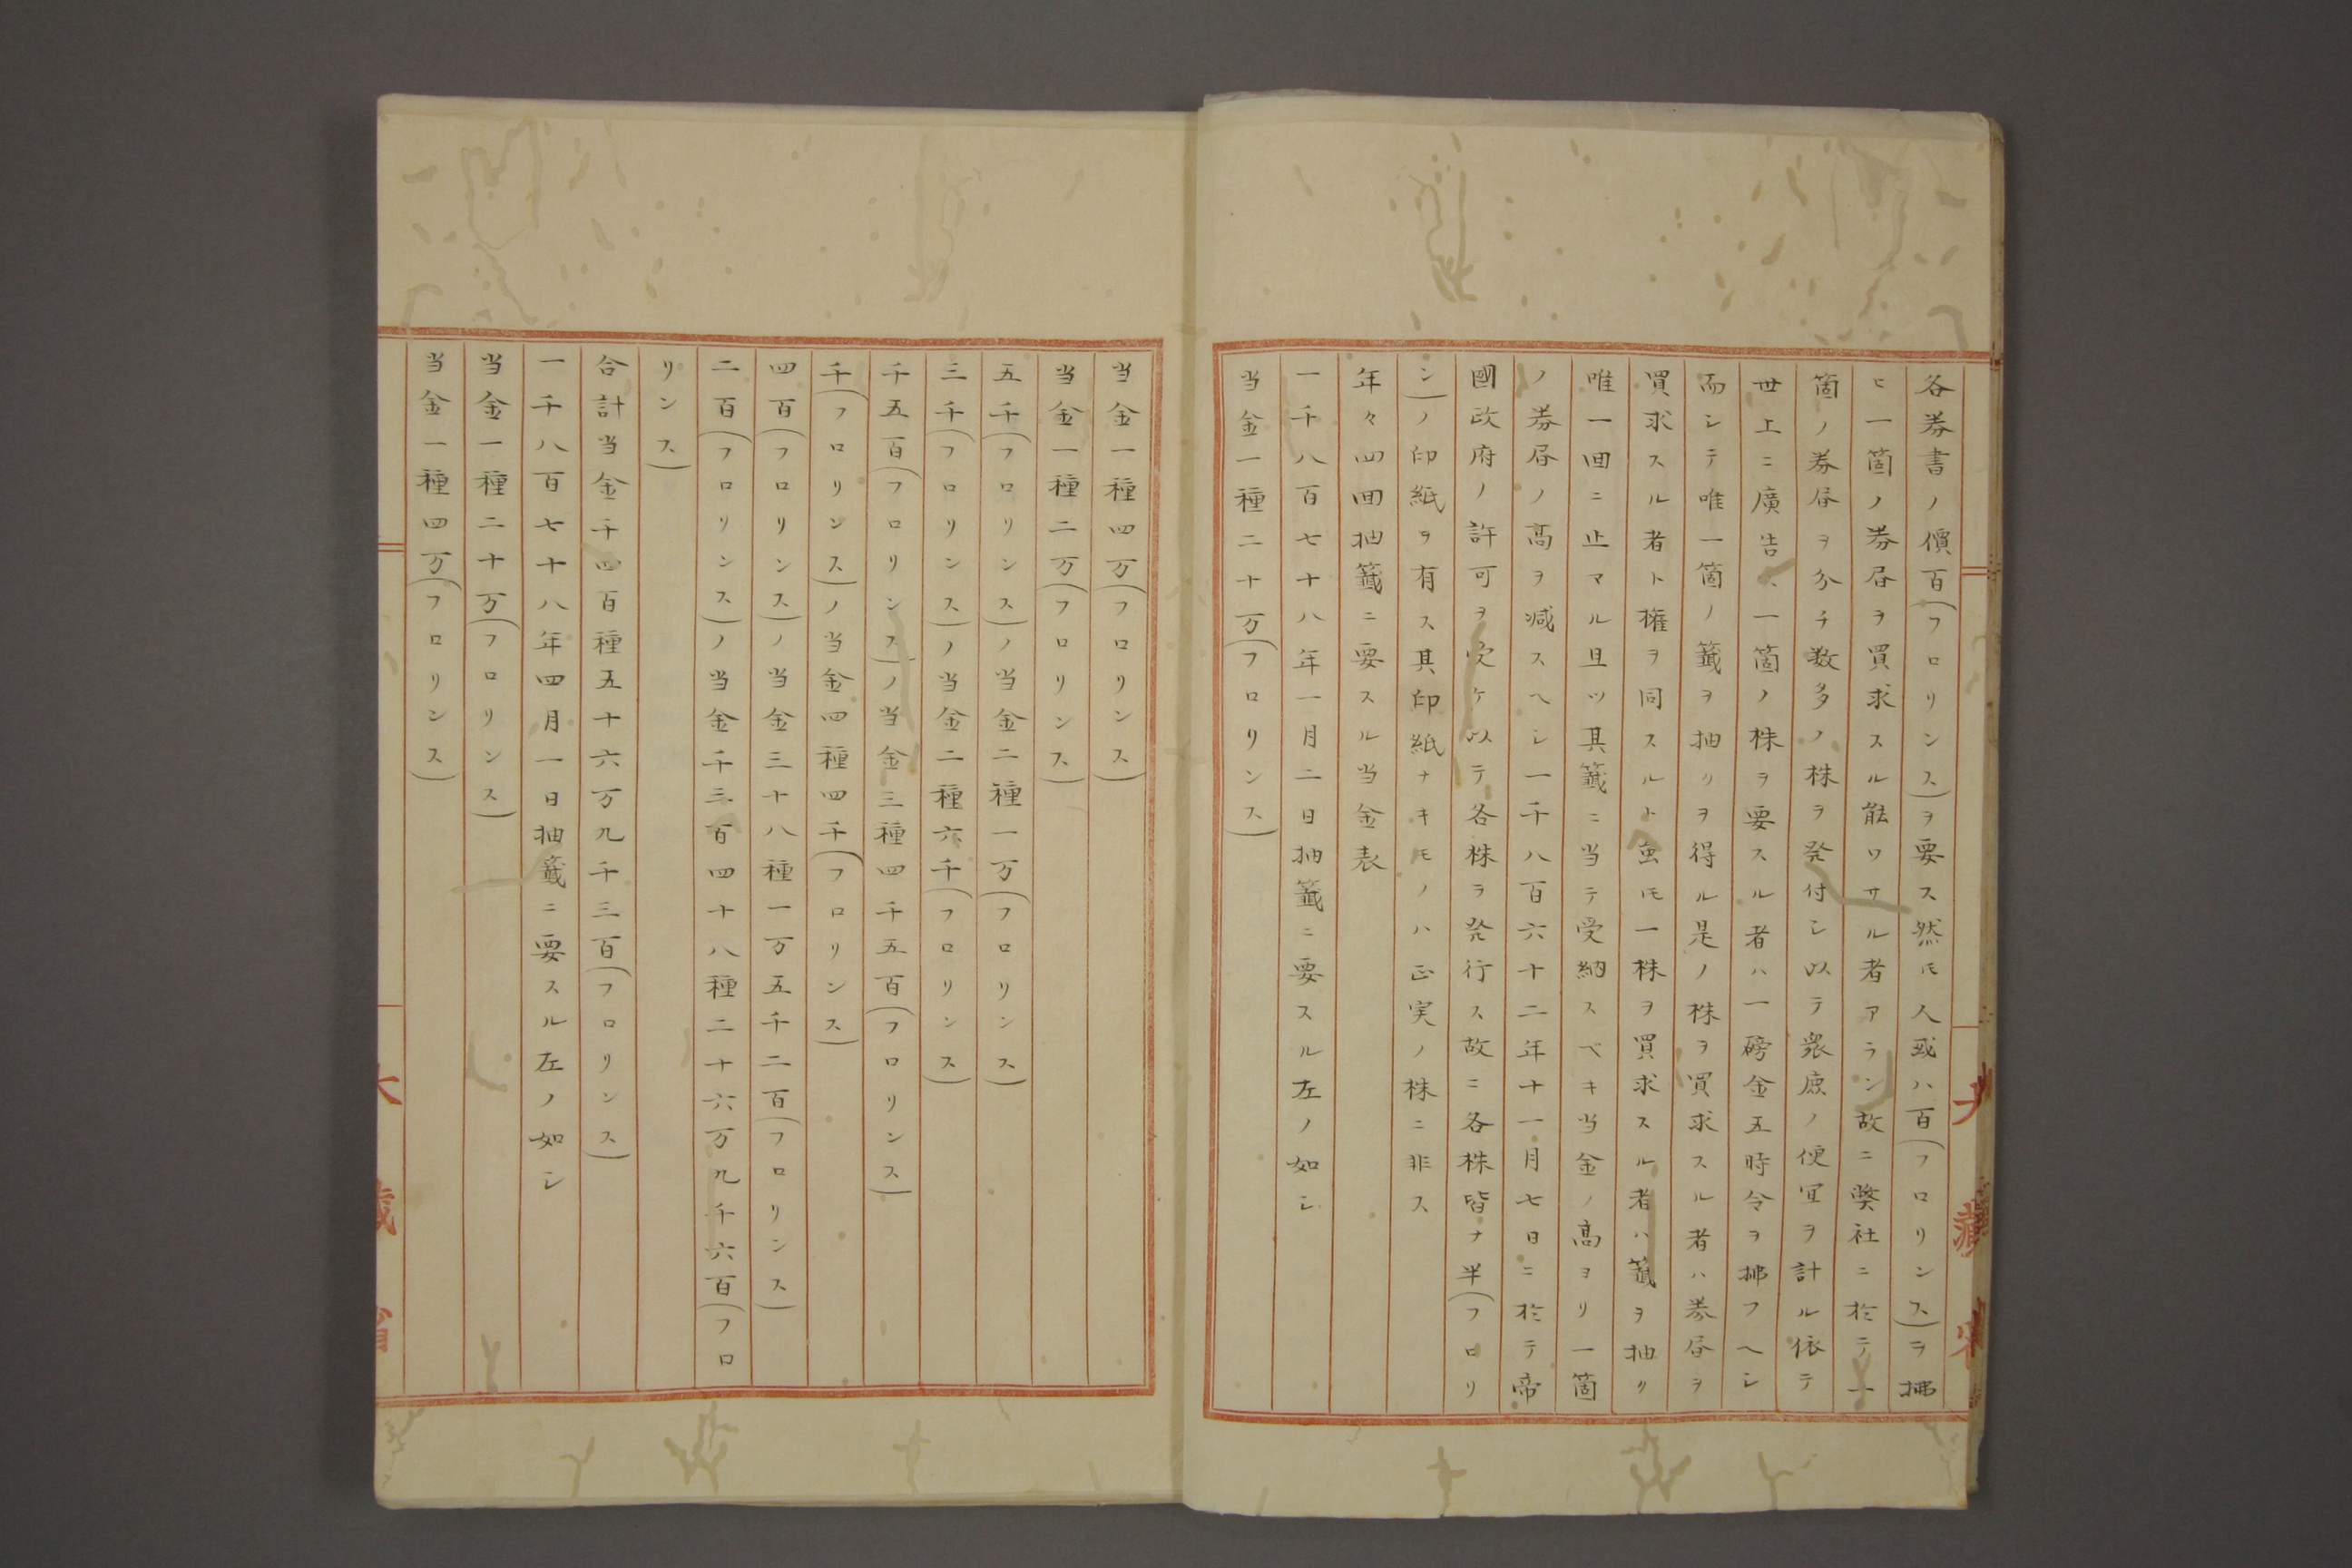 各券書ノ價百(フロリンス)ヲ要ス然ㇳモ人或ハ百(フロリンス)ヲ拂
ヒ一箇ノ券書ヲ買求スル能ワサル者アラン故ニ弊社ニ於テ一
箇ノ券書ヲ分チ数多ノ株ヲ発付シ以テ衆庶ノ便宜ヲ計ル依テ
世上ニ廣告ス一箇ノ株ヲ要スル者ハ一磅金五時令ヲ拂フヘシ
而シテ唯一箇ノ籤ヲ抽リヲ得ル是ノ株ヲ買求スル者ハ券書ヲ
買求スル者ト権ヲ同スルト虽ㇳモ一株ヲ買求スル者ハ籤ヲ抽リ
唯一回ニ止マル且ツ其籤ニ当テ受納スベキ当金ノ高ヨリ一箇
ノ券書ノ高ヲ减スヘシ一千八百六十二年十一月七日ニ於テ帝
國政府ノ許可ヲ受ケ以テ各株ヲ発行ス故ニ各株皆ナ半(フロリ
ン)ノ印紙ヲ有ス其印紙ナキモノハ正実ノ株ニ非ス
年々四回抽籤ニ要スル当金表
一千八百七十八年一月二日抽籤ニ要スル左ノ如シ
当金一種二十万(フロリンス)
当金一種四万(フロリンス)
当金一種二万(フロリンス)
五千(フロリンス)ノ当金二種一万(フロリンス)
三千(フロリンス)ノ当金二種六千(フロリンス)
千五百(フロリンス)ノ当金三種四千五百(フロリンス)
千(フロリンス)ノ当金四種四千(フロリンス)
四百(フロリンス)ノ当金三十八種一万五千二百(フロリンス)
二百(フロリンス)ノ当金千三百四十八種二十六万九千六百(フロ
リンス)
合計当金千四百種五十六万九千三百(フロリンス)
一千八百七十八年四月一日抽籤ニ要スル左ノ如シ
当金一種二十万(フロリンス)
当金一種四万(フロリンス)
大藏省